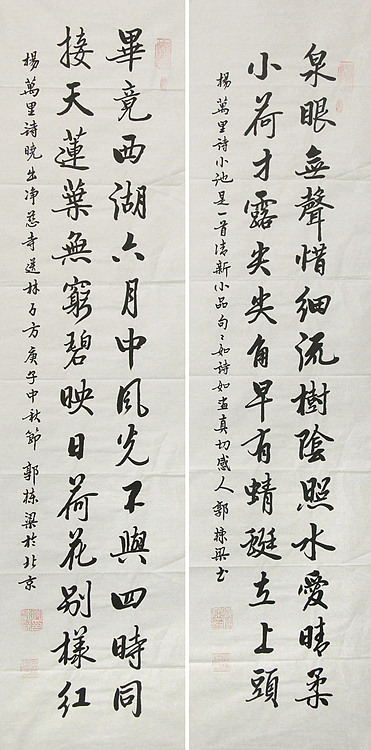 泉眼無聲惜細流樹陰照水愛晴柔
小荷才露尖尖角早有蜻蜓立上頭
楊萬里詩小池是一首清新小品句々如詩如畫真切感人郭棟梁書
畢竟西湖六月中風光不與四時同
接天蓮葉無窮碧映日荷花別樣紅
楊萬里詩曉出淨慈寺送林子方庚子中秋節郭棟梁於北京